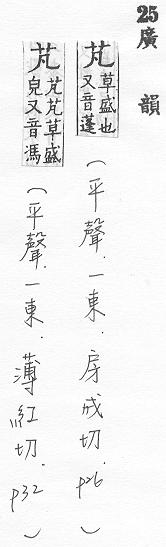 25 廣韻
芃 草盛也 又音蓬 （平聲．一東．房戎切．p26）
芃 芃芃草盛 皃又音馮 （平聲．一東．薄紅切．p32）